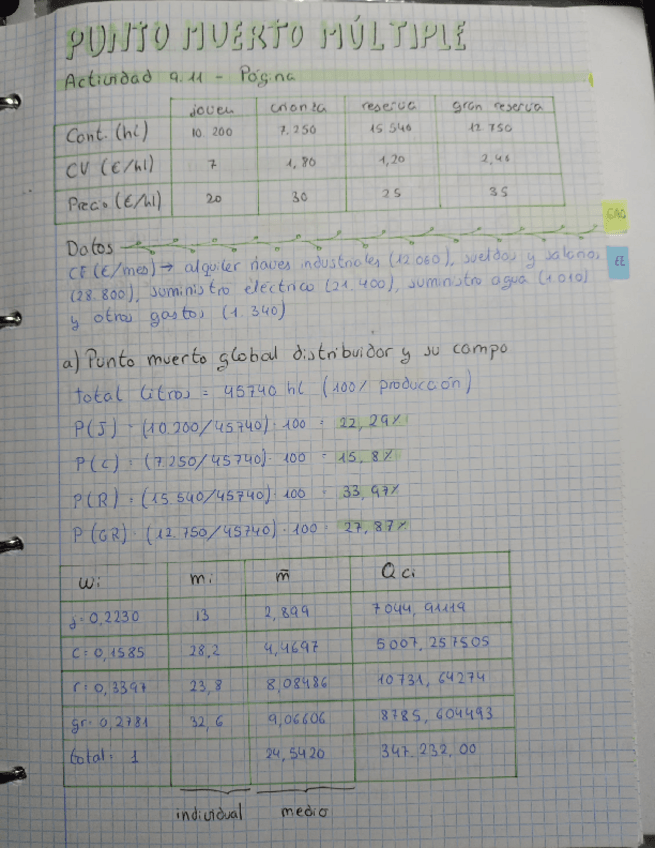 PUNTO MUERTO MÚLTIPLE
Actividad 9.11 - Página
joven crianza reserva gran reserva
Cont. (hl) 10.200 7.250 15.540 12.750
CV (€/hl) 7 1,80 1,20 2,40
Precio (€/hl) 20 30 25 35
Datos
CF (€/mes) → alquiler naves industriales (12.060), sueldos y salarios
(28.800), suministro eléctrico (21.400), suministro agua (1.010)
y otros gastos (1.340)
EE
a) Punto muerto global distribuidor y su compo
total litros = 45740 hl (100% producción)
P(J) = (10.200/45740) · 100 = 22,29%
P(C) = (7.250/45740) · 100 = 15,8%
P(R) = (15.540/45740) · 100 = 33,97%
P(GR) = (12.750/45740) · 100 = 27,87%
Wi mi m̄ Qci
j = 0,2230 13 2,899 7044,91119
c = 0,1585 28,2 4,4697 5007,257505
r = 0,3397 23,8 8,08486 10731,64274
gr = 0,2781 32,6 9,06606 8785,604493
total = 1 24,5420 347.232,00
individual medio